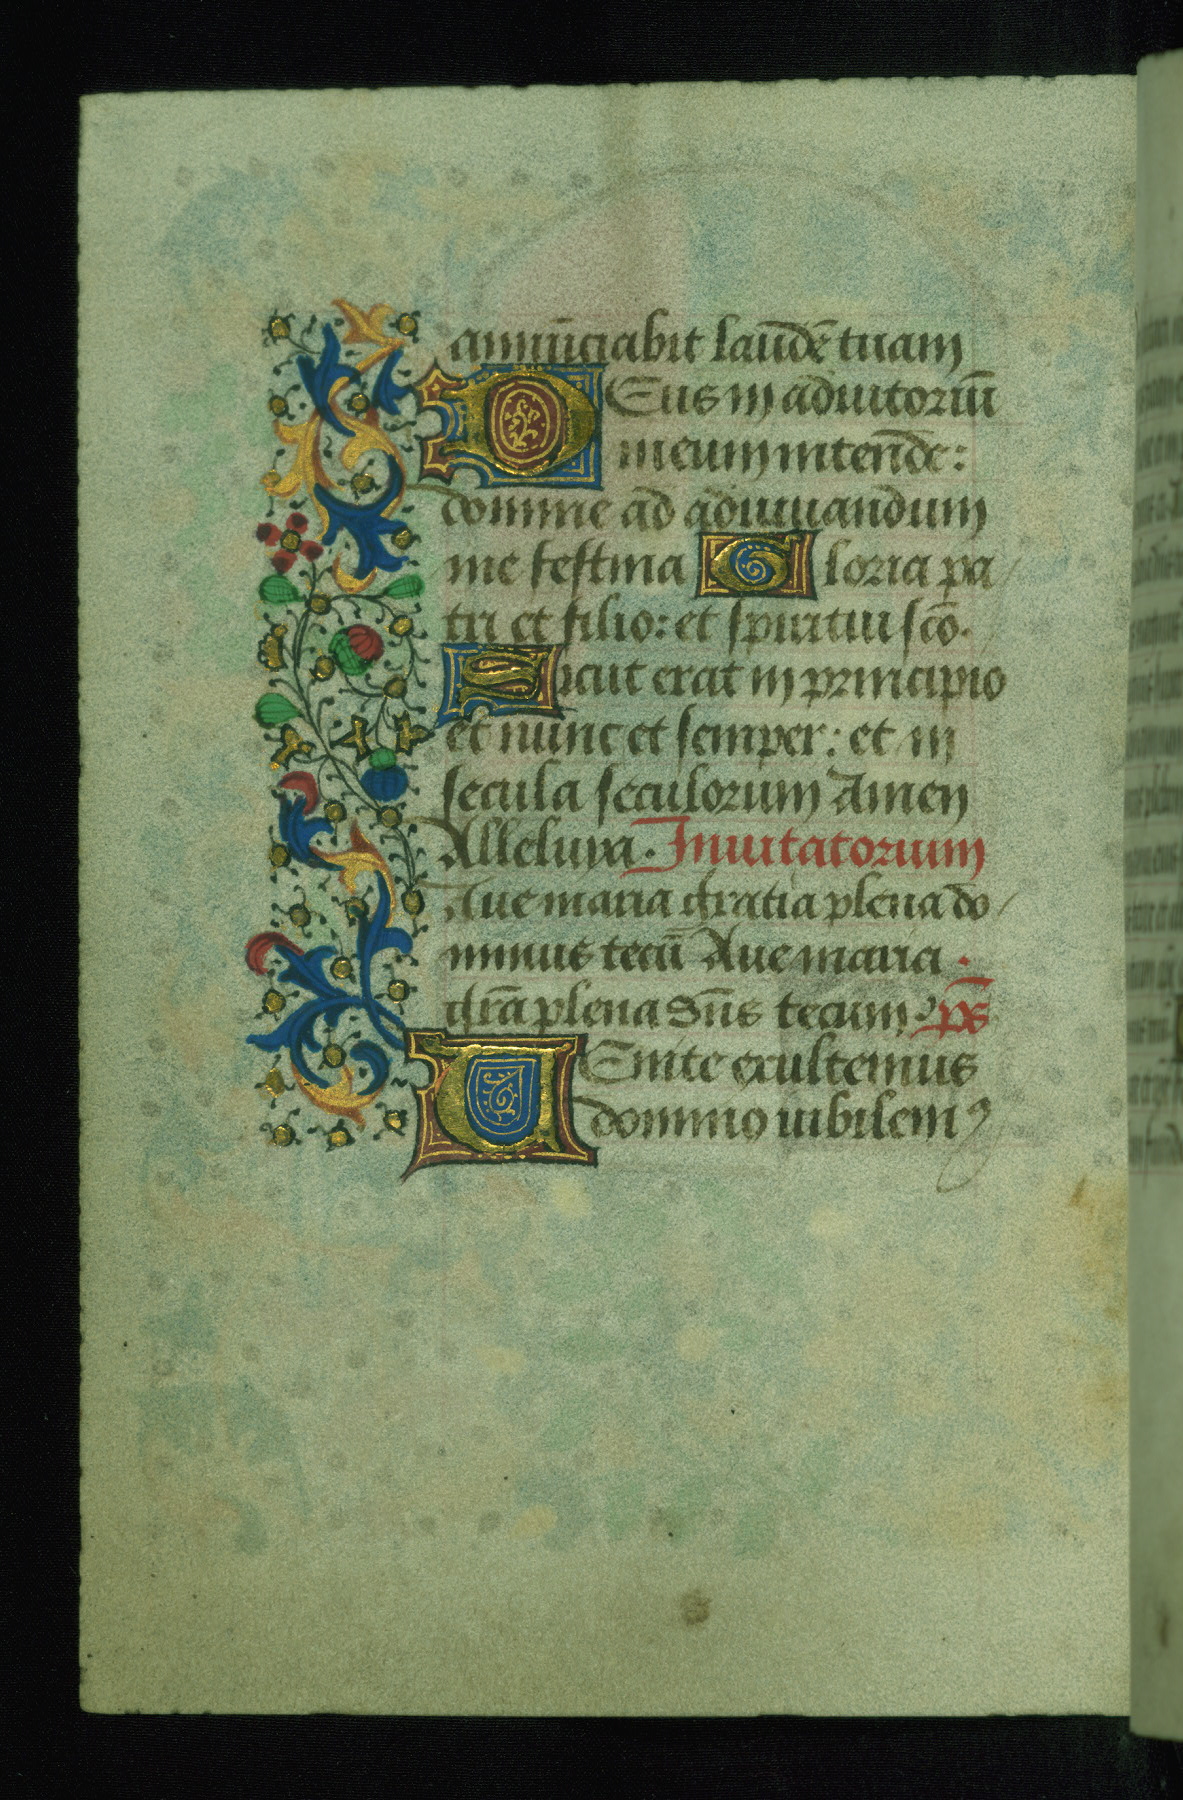 annūciabit laudē tuam
Deus in adiutoriū
meum intende:
domine ad adiuuandum
me festina Gloria pa
tri et filio: et spiritui scō.
Sicut erat in principio
et nunc et semper: et in
secula seculorum Amen
Alleluya. Inuitatorium
Aue maria gratia plena do
minus tecū Aue maria.
grā plena dn̄s tecum p̄s
Uenite exultemus
domino iubilem9